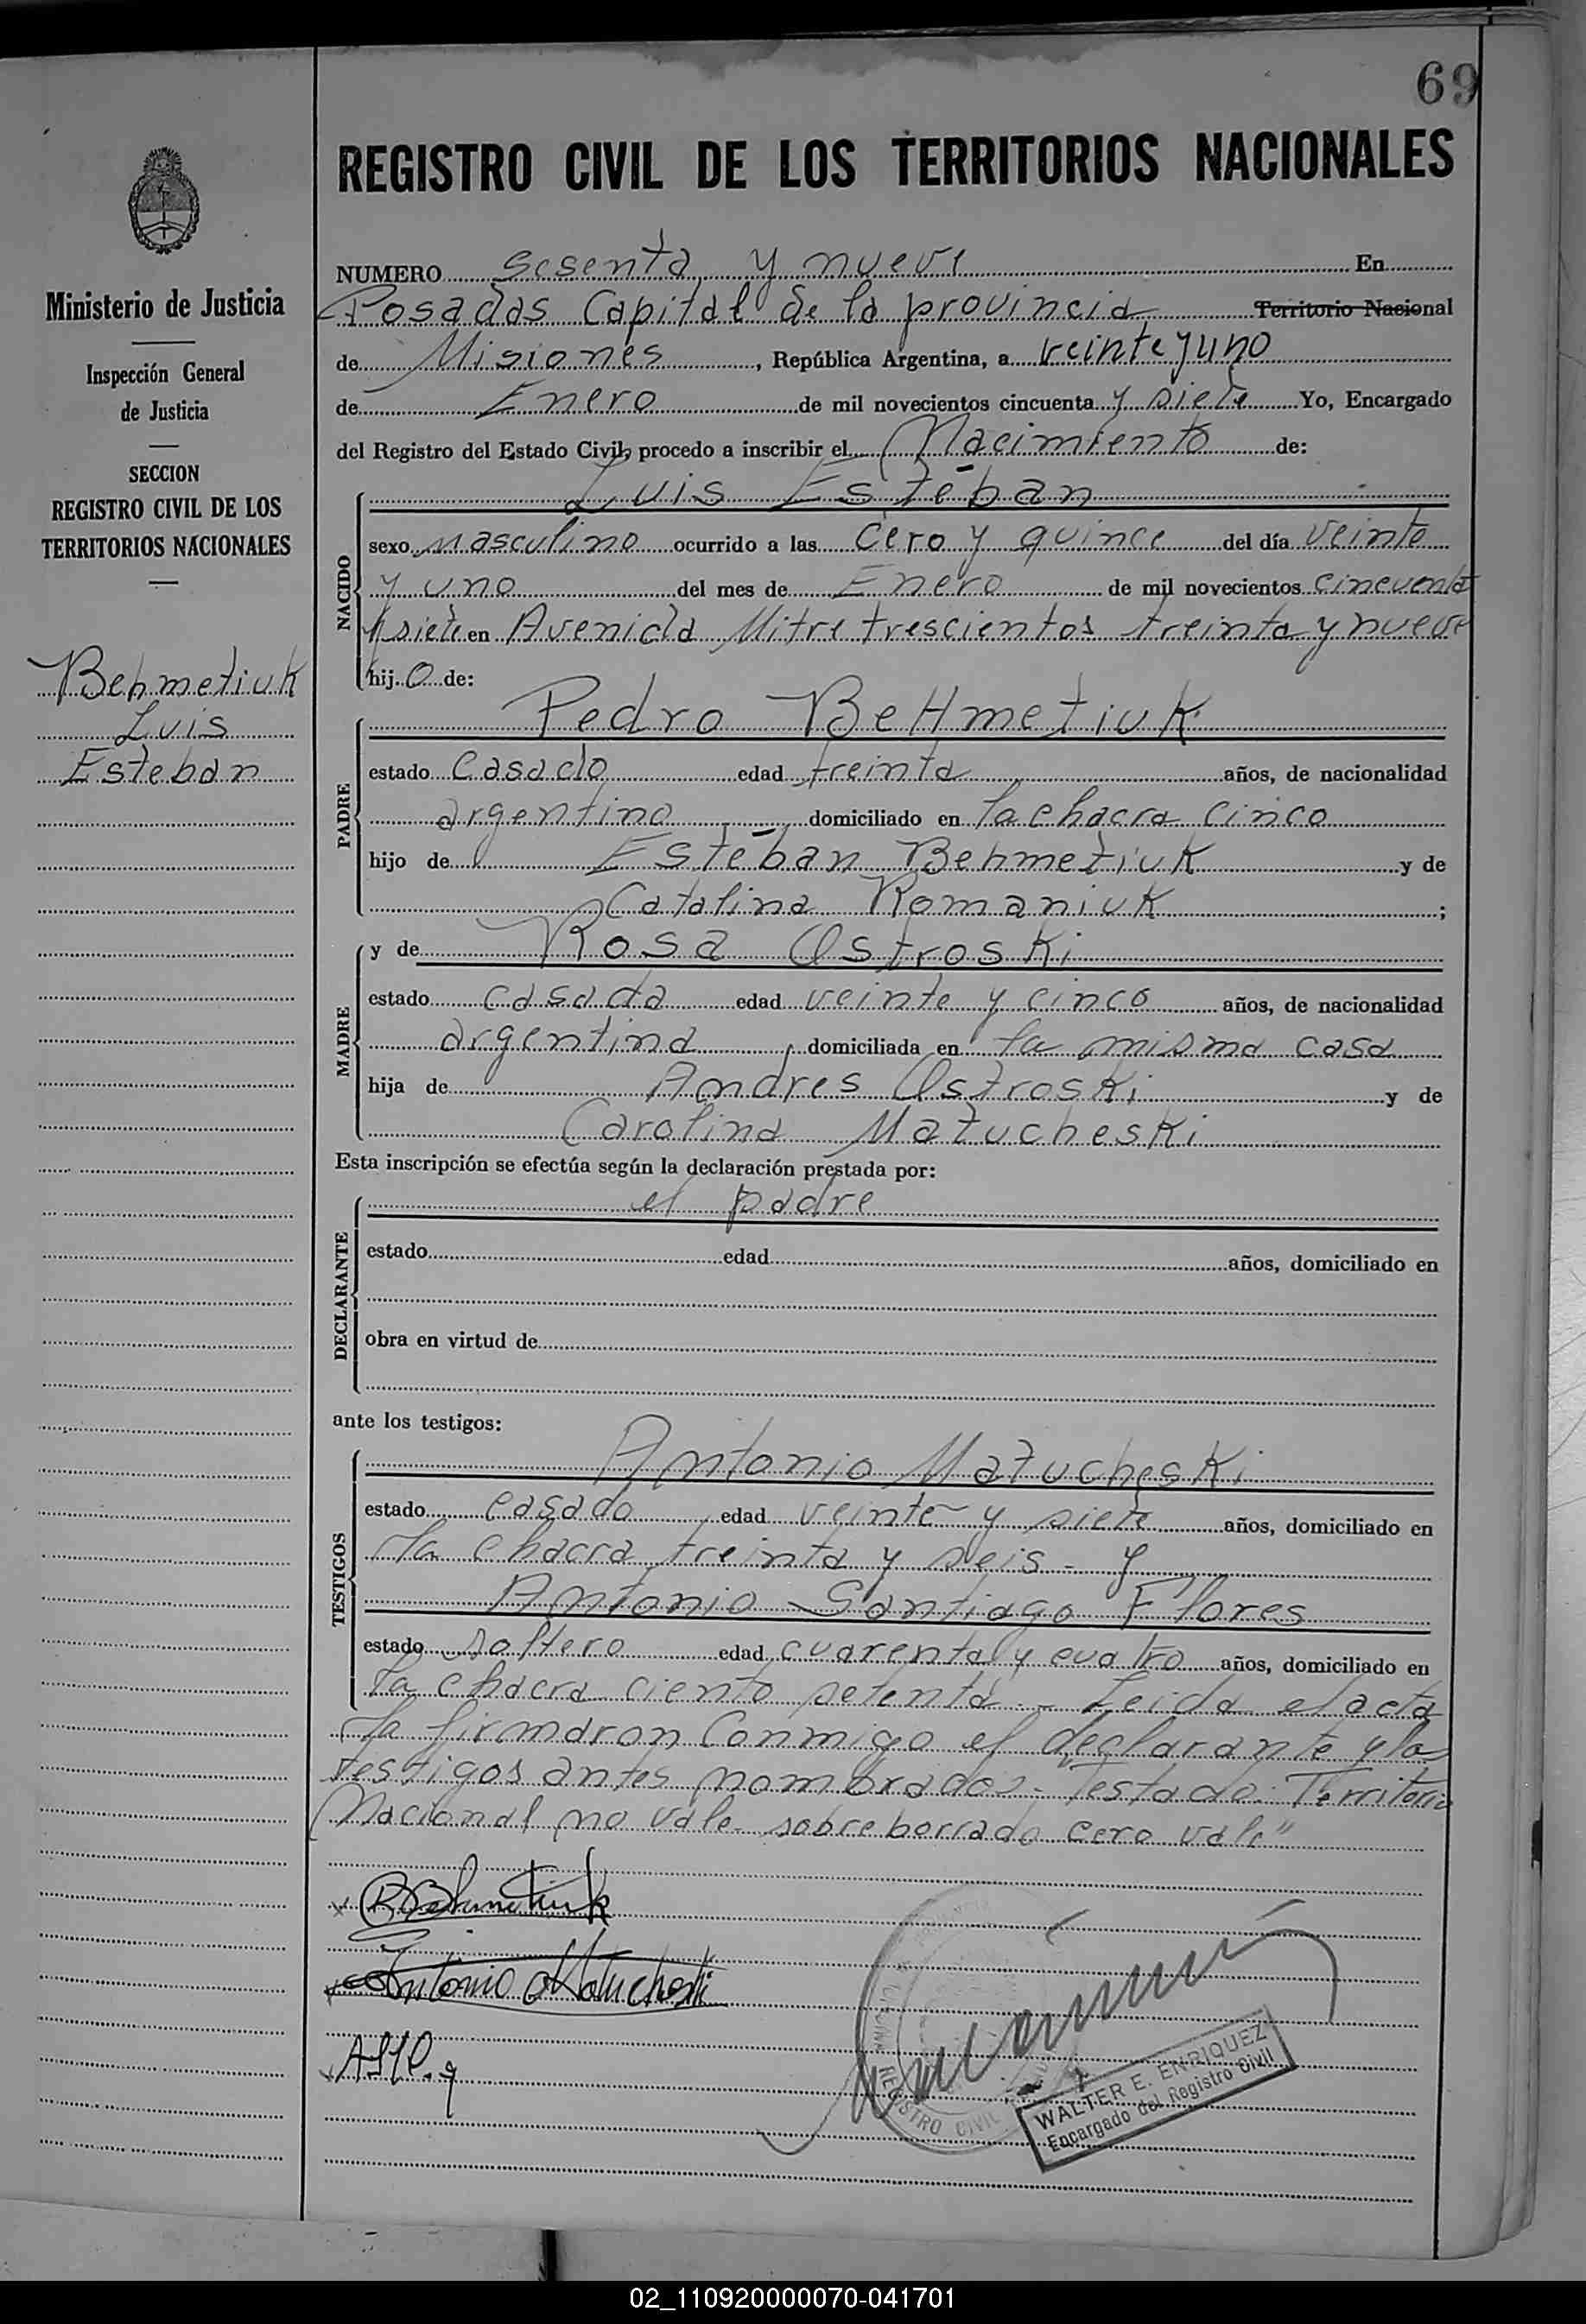 69
REGISTRO CIVIL DE LOS TERRITORIOS NACIONALES
Ministerio de Justicia
Inspección General
de Justicia
SECCION
REGISTRO CIVIL DE LOS
TERRITORIOS NACIONALES
Behmetiuk
Luis
Esteban
NUMERO sesenta y nueve En
Posadas Capital de la provincia Territorio Nacional
de Misiones, República Argentina, a veinte y uno
de Enero de mil novecientos cincuenta y siete Yo, Encargado
del Registro del Estado Civil, procedo a inscribir el Nacimiento de:
NACIDO
Luis Esteban
sexo masculino ocurrido a las cero y quince del día veinte
y uno del mes de Enero de mil novecientos cincuenta
y siete en Avenida Mitre trescientos treinta y nueve
hijo de:
PADRE
Pedro BeHmetiuk
estado casado edad treinta años, de nacionalidad
argentino domiciliado en la chacra cinco
hijo de Esteban Behmetiuk y de
Catalina Romaniuk ;
MADRE
y de Rosa Ostroski
estado casada edad veinte y cinco años, de nacionalidad
argentina domiciliada en la misma casa
hija de Andres Ostroski y de
Carolina Matucheski
Esta inscripción se efectúa según la declaración prestada por:
DECLARANTE
el padre
estado edad años, domiciliado en
obra en virtud de
ante los testigos:
TESTIGOS
Antonio Matucheski
estado casado edad veinte y siete años, domiciliado en
la chacra treinta y seis - y
Antonio Santiago Flores
estado soltero edad cuarenta y cuatro años, domiciliado en
la chacra ciento setenta - Leida el acta
la firmaron conmigo el declarante y los
testigos antes nombrados - Testado: Territorio
Nacional no vale - sobre borrado cero vale"
x PBehmetiuk
x Antonio Matucheski
x
REGISTRO CIVIL
WALTER E. ENRIQUEZ
Encargado del Registro Civil
02_110920000070-041701